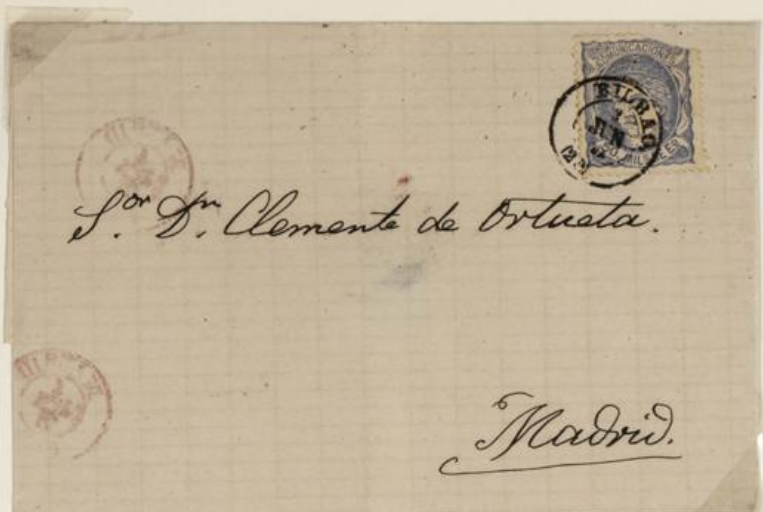 COMUNICACIONES
BILBAO
JUN
MILS. DE ES
S.or D.n Clemente de Ortueta.
Madrid.